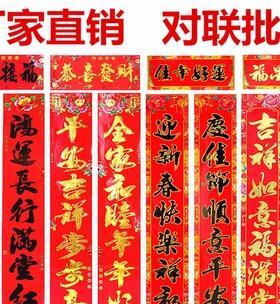 厂家直销 对联批
接福
恭喜發財
佳年好運
福
鴻運長行滿堂紅
平安吉祥步步
全家和睦年年
迎新春快樂祥
慶佳節順意平
吉祥如意福滿